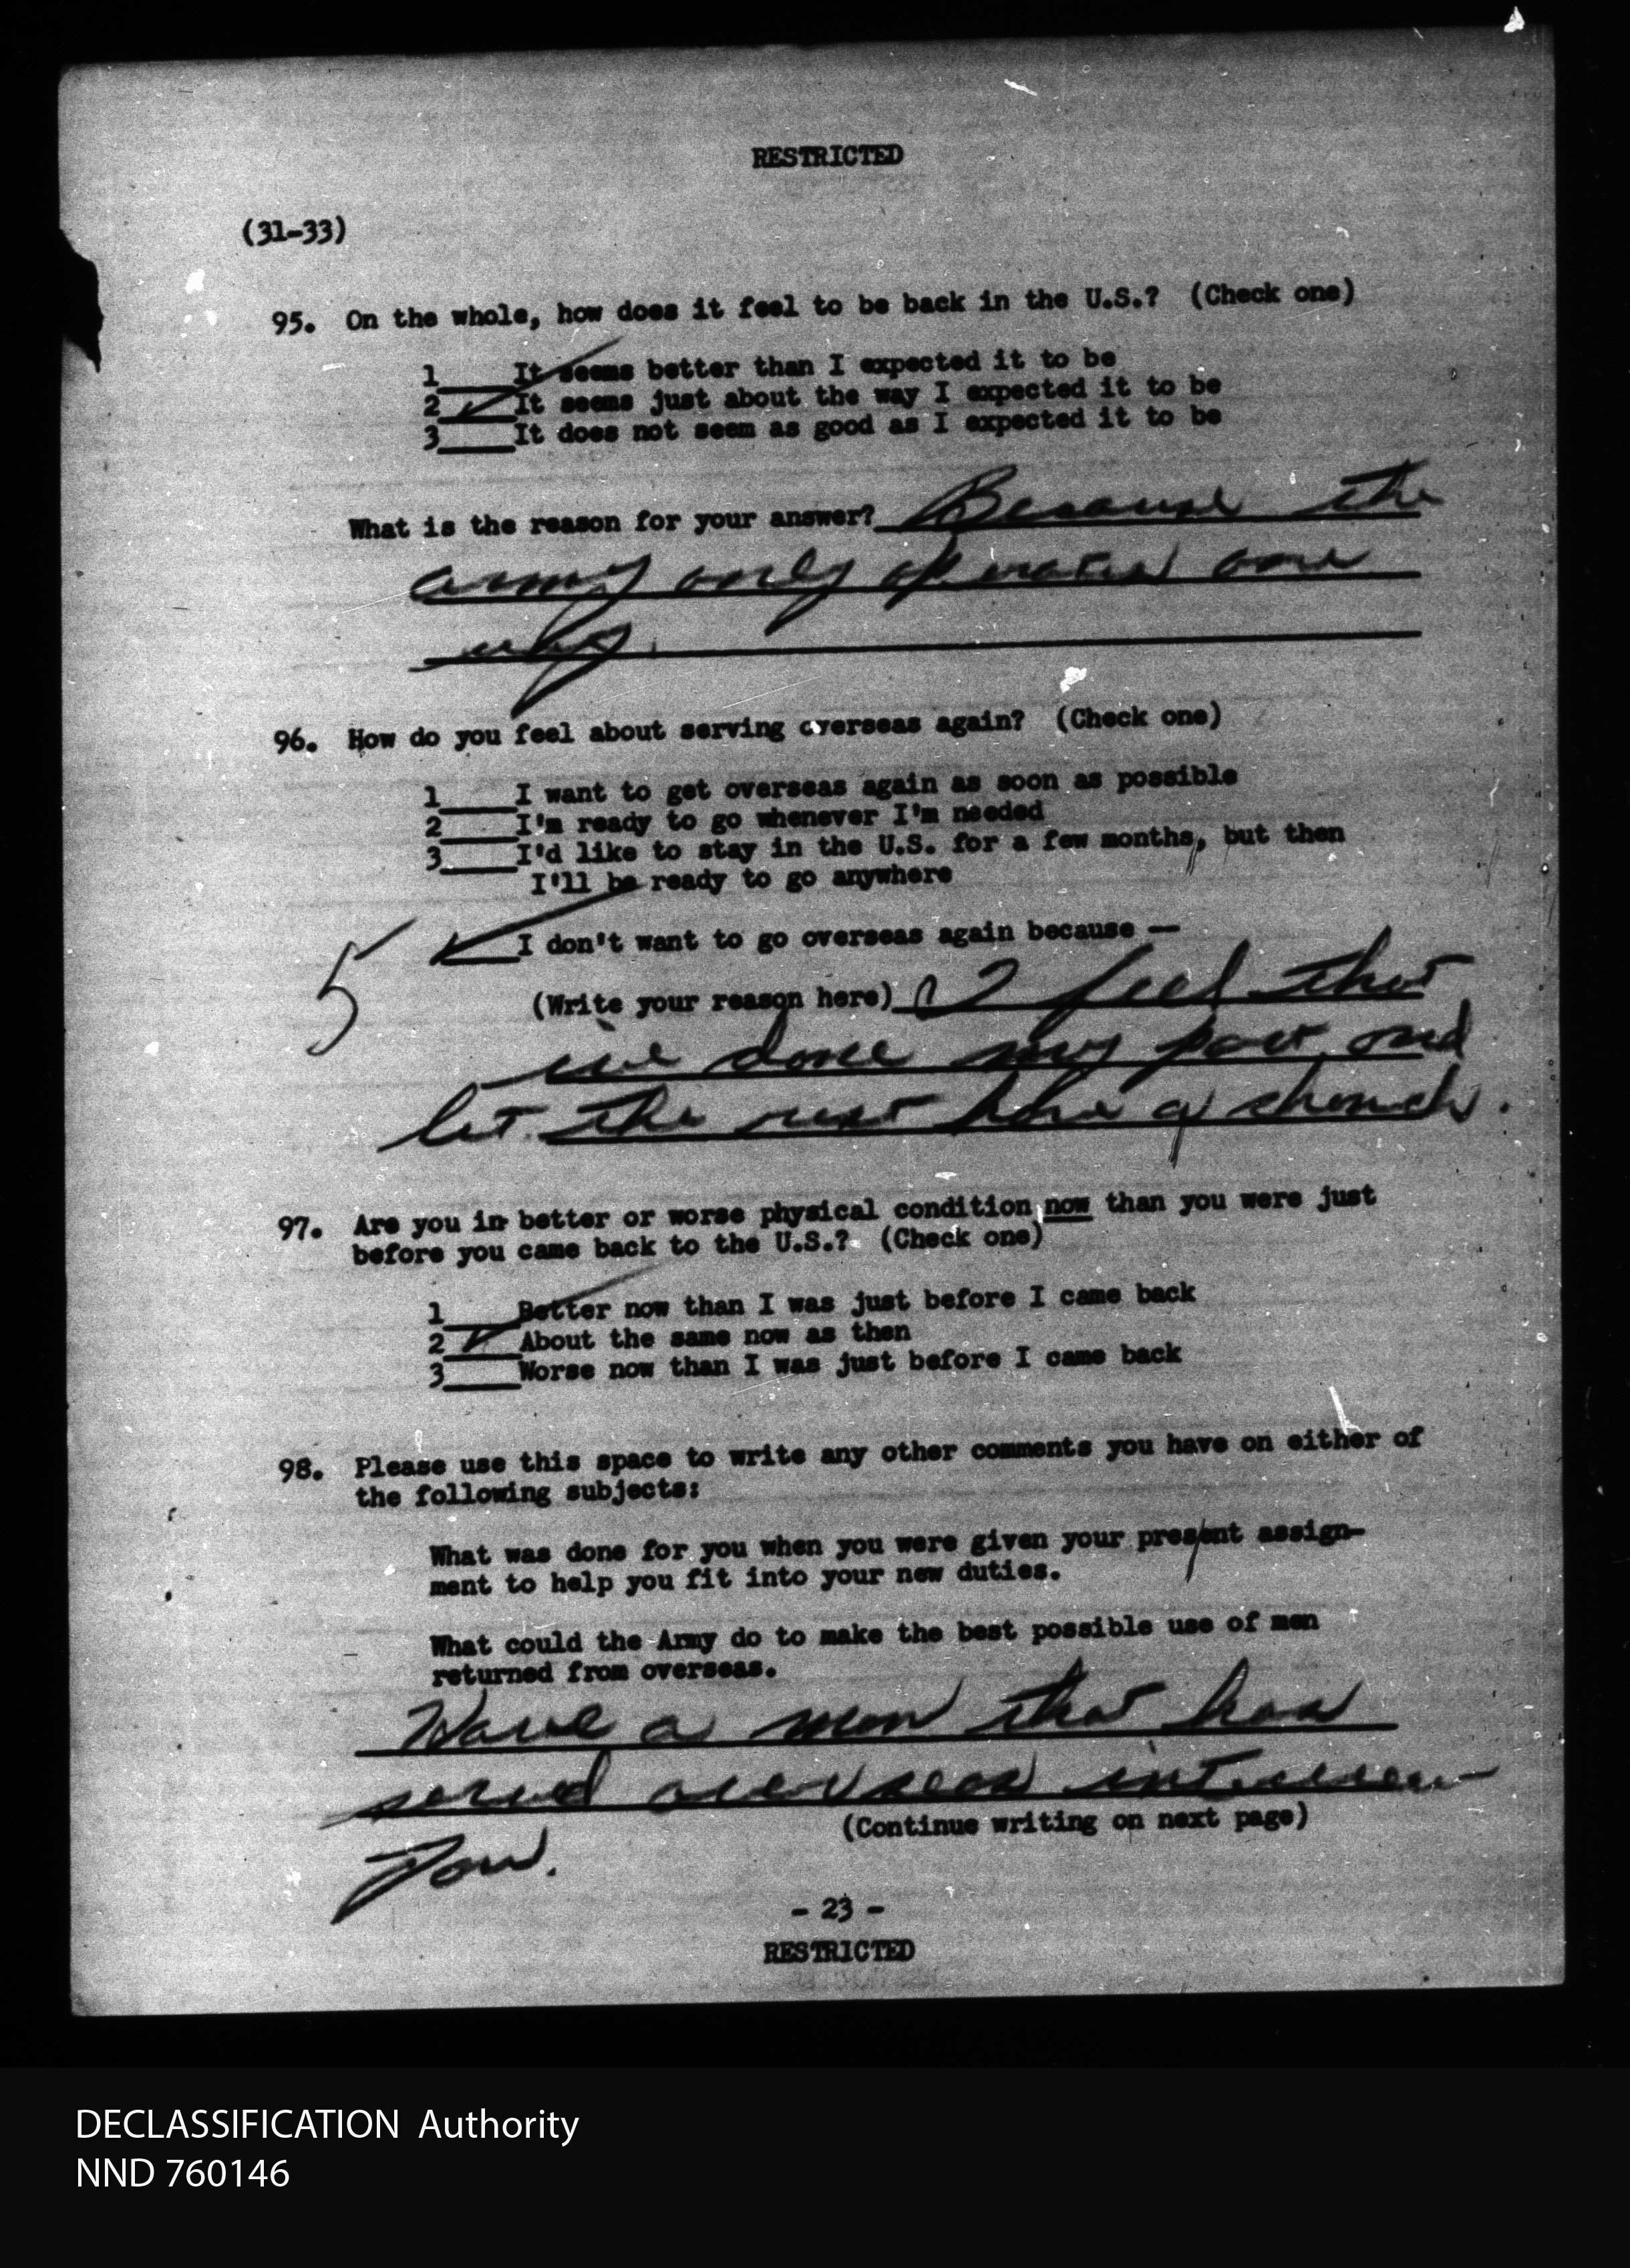 RESTRICTED
(31-33)
95. On the whole, how does it feel to be back in the U.S.? (Check one)
1____It seems better than I expected it to be
2__✓_It seems just about the way I expected it to be
3____It does not seem as good as I expected it to be
What is the reason for your answer? Because the
army only operates one
way.
96. How do you feel about serving overseas again? (Check one)
1____I want to get overseas again as soon as possible
2____I'm ready to go whenever I'm needed
3____I'd like to stay in the U.S. for a few months, but then
I'll be ready to go anywhere
5 ✓___I don't want to go overseas again because —
(Write your reason here) I feel that
i've done my part and
let the rest have a
97. Are you in better or worse physical condition now than you were just
before you came back to the U.S.? (Check one)
1____Better now than I was just before I came back
2__✓_About the same now as then
3____Worse now than I was just before I came back
98. Please use this space to write any other comments you have on either of
the following subjects:
What was done for you when you were given your present assign-
ment to help you fit into your new duties.
What could the Army do to make the best possible use of men
returned from overseas.
Have a man that has
served overseas
(Continue writing on next page)
you.
- 23 -
RESTRICTED
DECLASSIFICATION Authority
NND 760146